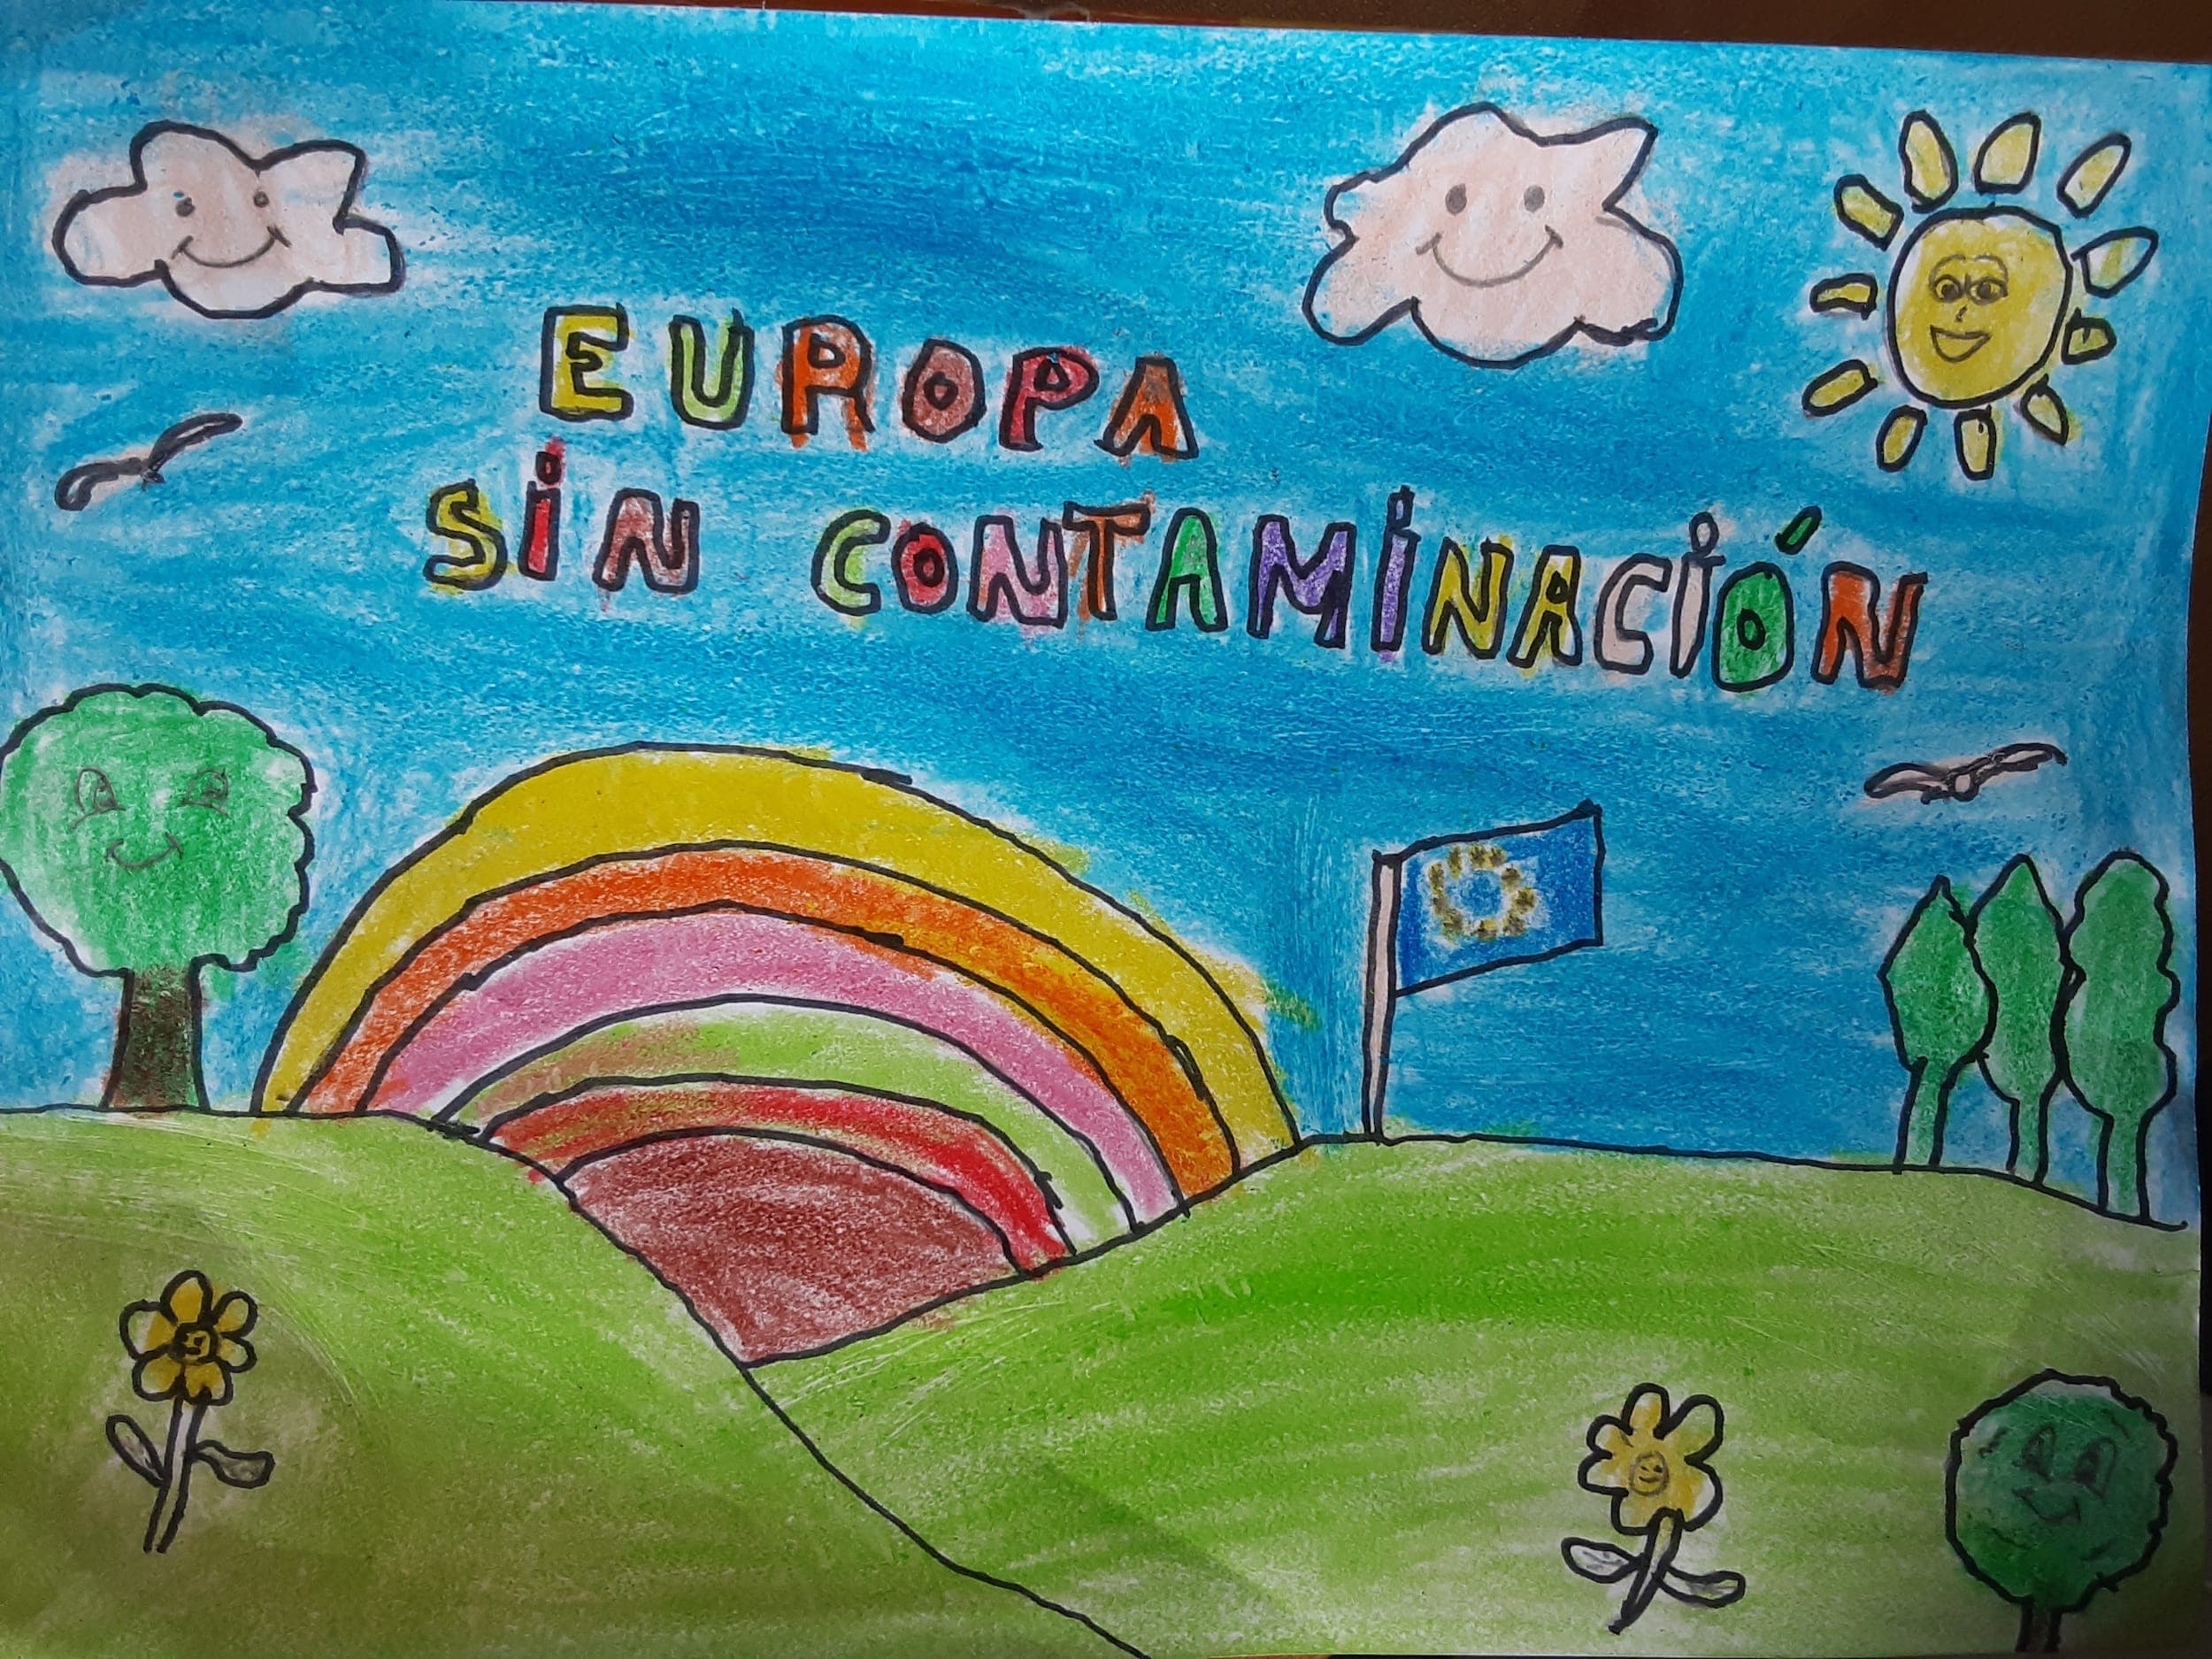 EUROPA
SiN CONTAMiNACiÓN